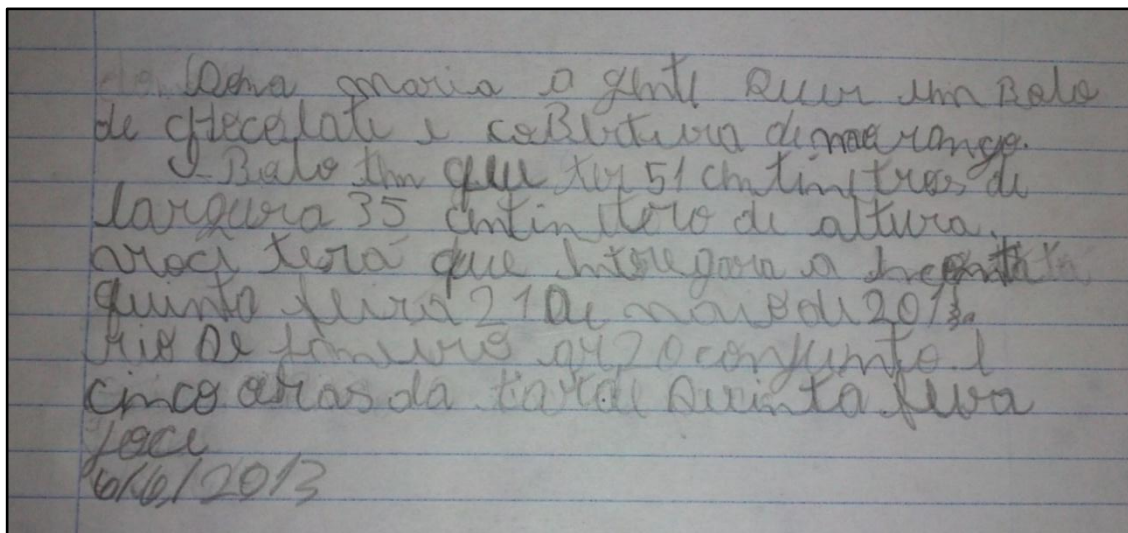 Dona maria a gente Quer um Bolo
de chocolate e coBertura de morango.
O Bolo tem que ter 51 centimetros de
largura 35 centimetero de altura.
você terá que
quinta feira 21 De maio de 2013
rio De Janeiro qr 20 conjunto
cinco oras da tarde Quinta feira
6/6/2013